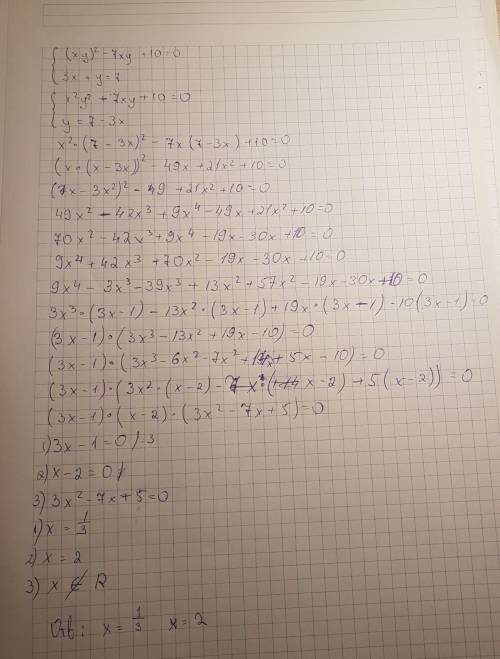 { (xy)² - 7xy + 10 = 0
3x + y = 7
{ x²y² + 7xy + 10 = 0
y = 7 - 3x
x² · (7 - 3x)² - 7x(7 - 3x) + 10 = 0
(x · (x - 3x))² - 49x + 21x² + 10 = 0
(7x - 3x²)² - 49 + 21x² + 10 = 0
49x² - 42x³ + 9x⁴ - 49x + 21x² + 10 = 0
70x² - 42x³ + 9x⁴ - 19x - 30x + 10 = 0
9x⁴ + 42x³ + 70x² - 19x - 30x + 10 = 0
9x⁴ - 3x³ - 39x³ + 13x² + 57x² - 19x - 30x + 10 = 0
3x³ · (3x - 1) - 13x² · (3x - 1) + 19x · (3x - 1) - 10(3x - 1) = 0
(3x - 1) · (3x³ - 13x² + 19x - 10) = 0
(3x - 1) · (3x³ - 6x² - 7x² + 14x + 5x - 10) = 0
(3x - 1) · (3x² · (x - 2) - 7x · (x - 2) + 5(x - 2)) = 0
(3x - 1) · (x - 2) · (3x² - 7x + 5) = 0
1) 3x - 1 = 0 /:3
2) x - 2 = 0
3) 3x² - 7x + 5 = 0
1) x = 1/3
2) x = 2
3) x ∉ R
Отв: x = 1/3 x = 2